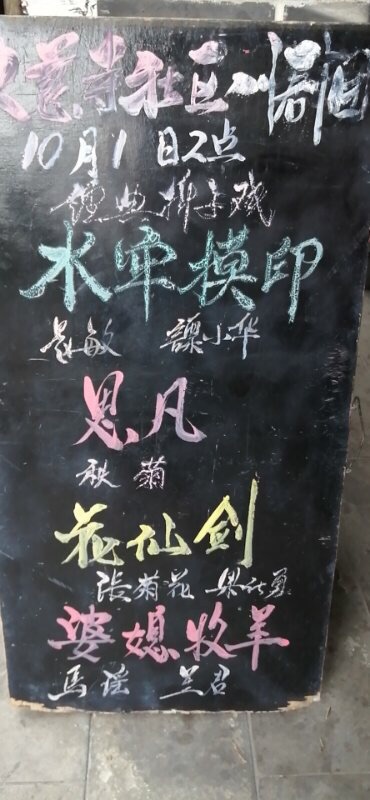 大慈寺社区川剧团
10月1日2点
经典折子戏
水牢摸印
晏敏 谭小华
思凡
秋菊
花仙剑
張菊花 勇
婆媳牧羊
馬瑶 兰君